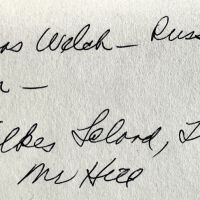 as Welch - Russ
n -
lkes Island, I
Mr Hill